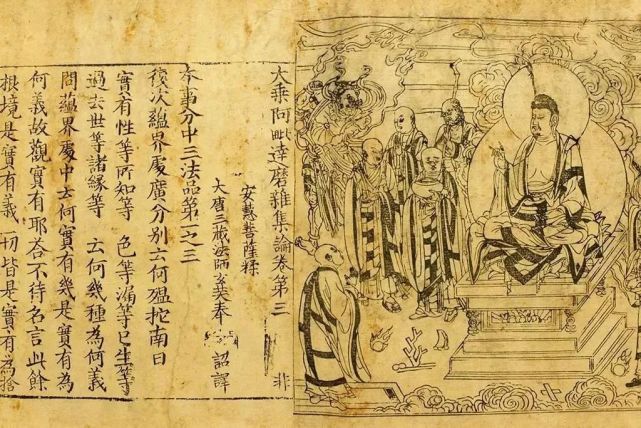 大乘阿毗達磨雜集論卷第三 非
安慧菩薩糅
大唐三藏法師玄奘奉 詔譯
本事分中三法品第一之三
復次蘊界處廣分別云何嗢拕南曰
實有性等所知等 色等漏等已生等
過去世等諸緣等 云何幾種為何義
問蘊界處中云何實有幾是實有為
何義故觀實有耶荅不待名言此餘
根境是實有義一切皆是實有為捨